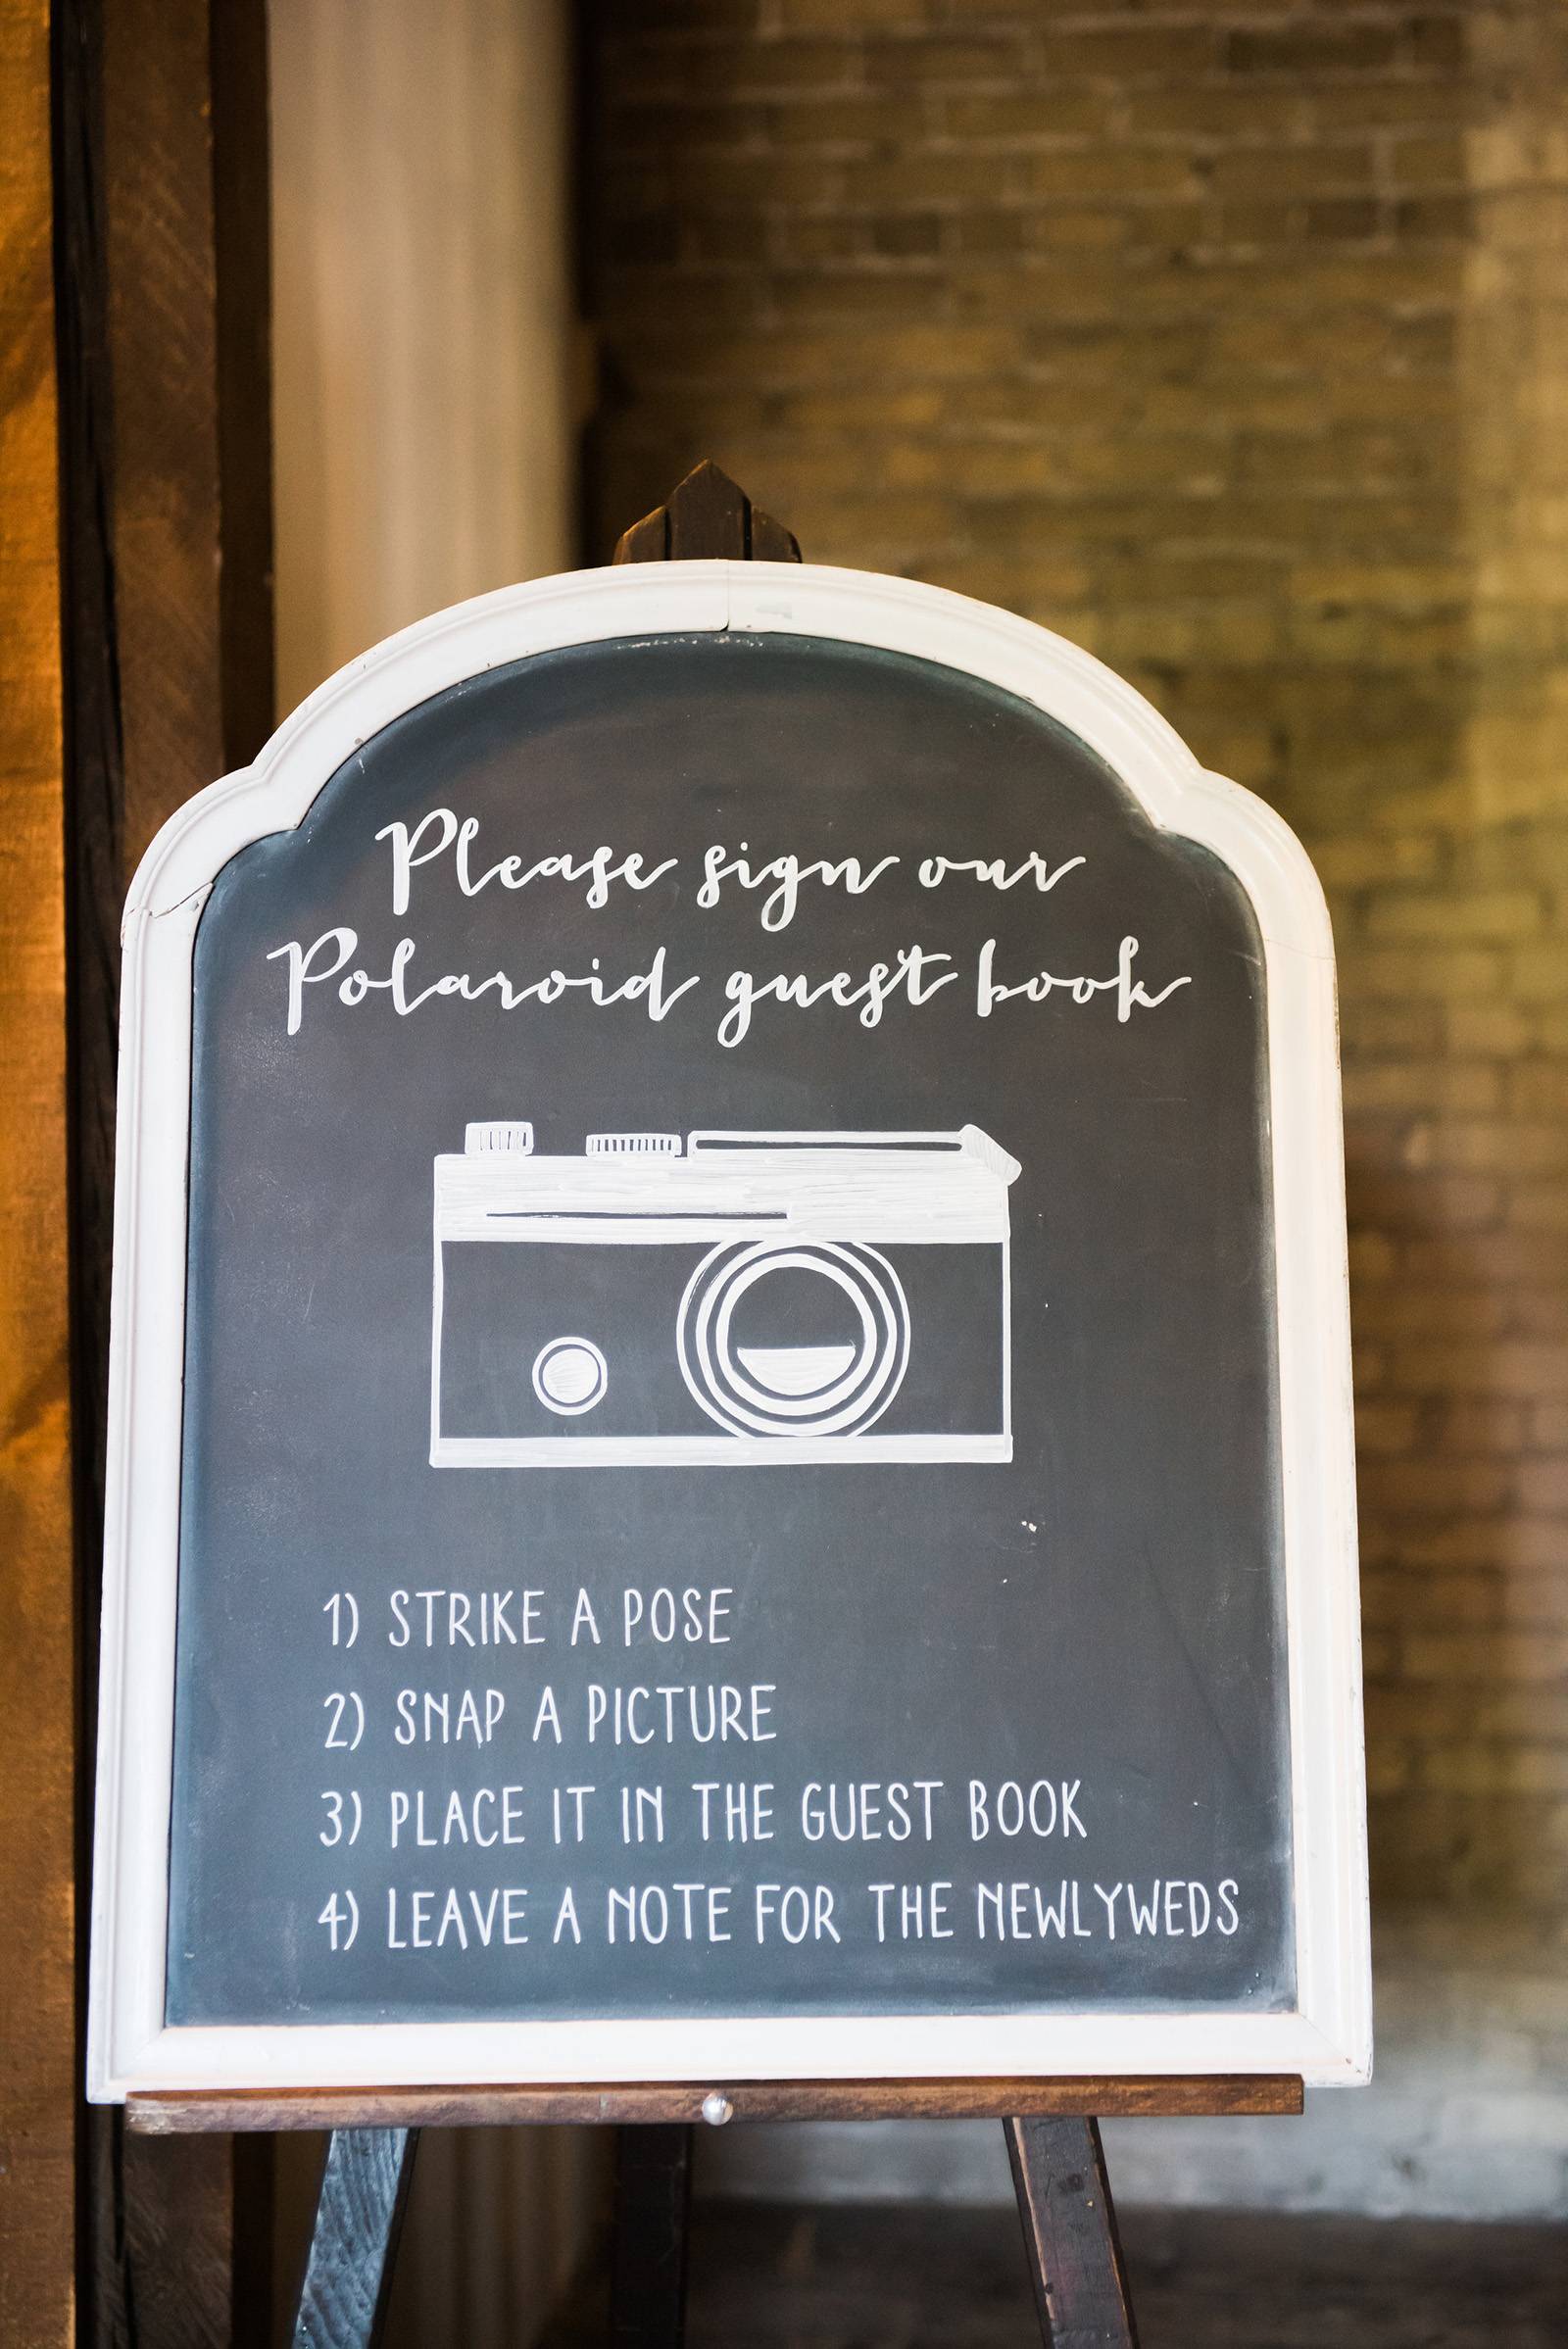 Please sign our
Polaroid guest book
1) STRIKE A POSE
2) SNAP A PICTURE
3) PLACE IT IN THE GUEST BOOK
4) LEAVE A NOTE FOR THE NEWLYWEDS